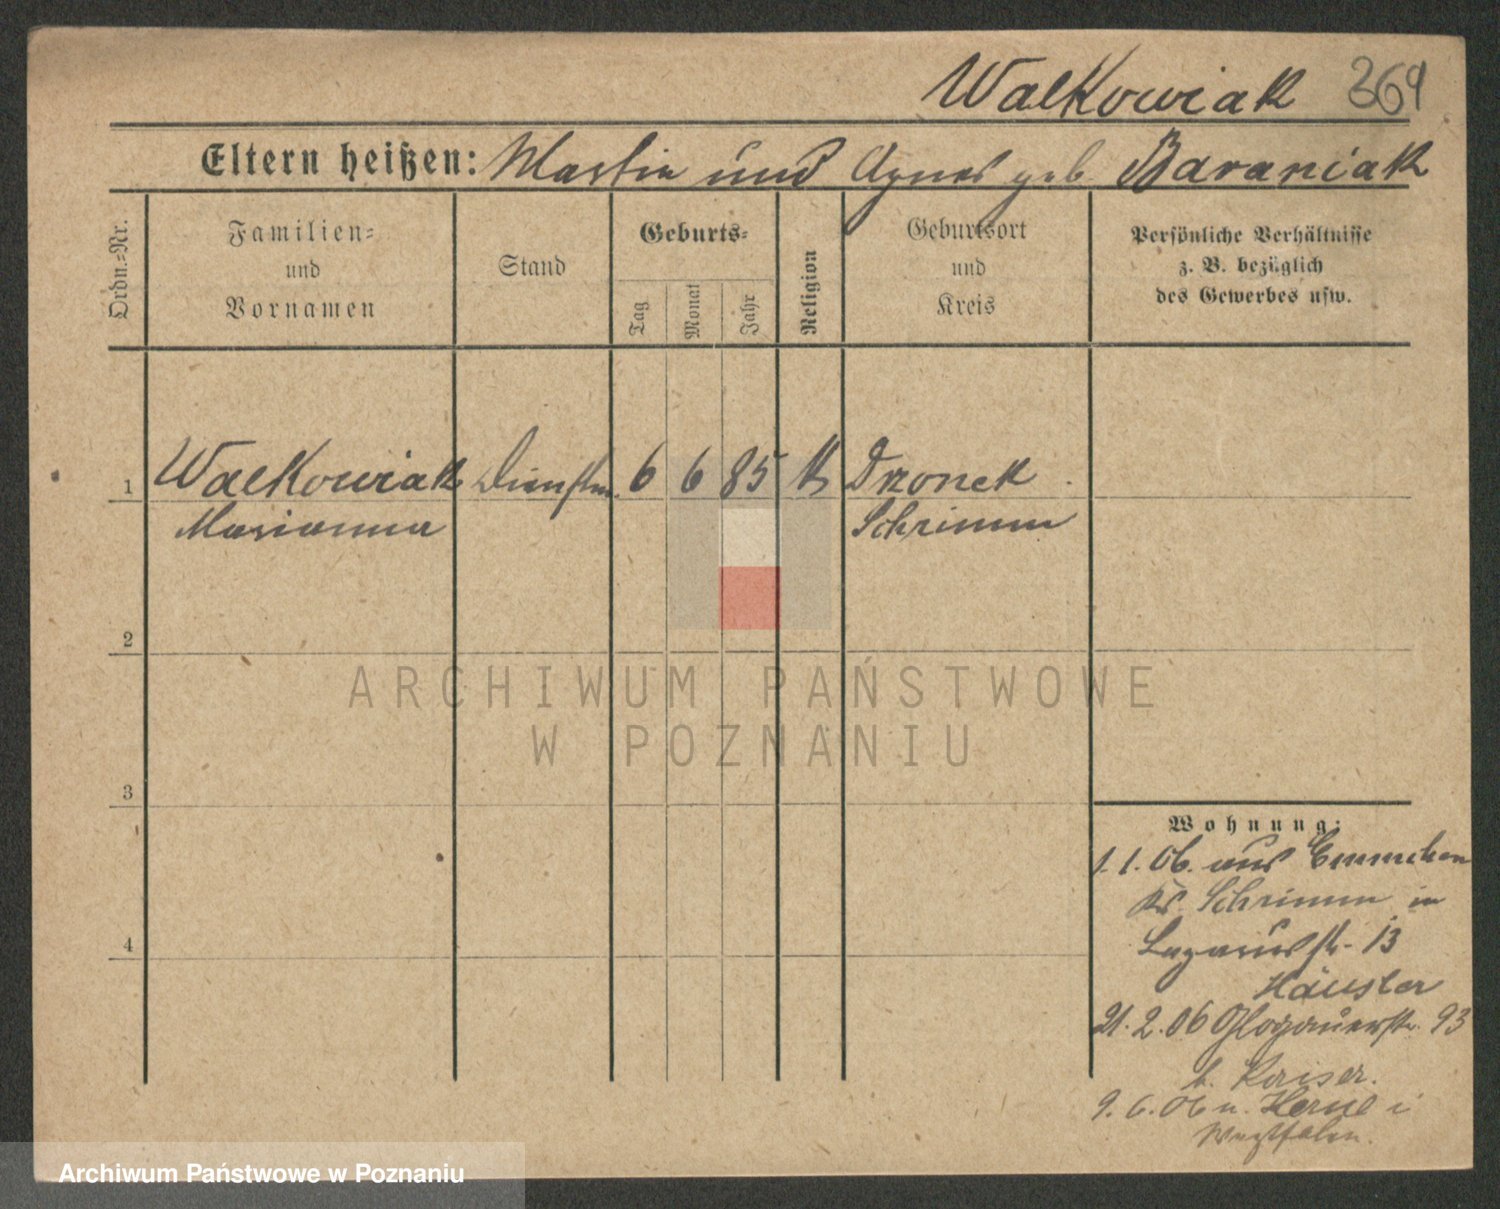 Walkowiak 369
Eltern heißen: Martin und Agnes geb. Baraniak
Ordn.-Nr.
Familien-
und
Vornamen
Stand
Geburts-
Tag
Monat
Jahr
Religion
Geburtsort
und
Kreis
Persönliche Verhältnisse
z. B. bezüglich
des Gewerbes usw.
1 Walkowiak 6 6 85 K Dzonek
Marianna Schrimm
2
3
4
Wohnung:
1.1.06. aus
Kr. Schrimm in
Lazarusstr. 13
Häusler
21.2.06 Glogauerstr. 93
b. Kaiser.
9.6.06 n. Herne i
Westfalen.
ARCHIWUM PAŃSTWOWE
W POZNANIU
Archiwum Państwowe w Poznaniu